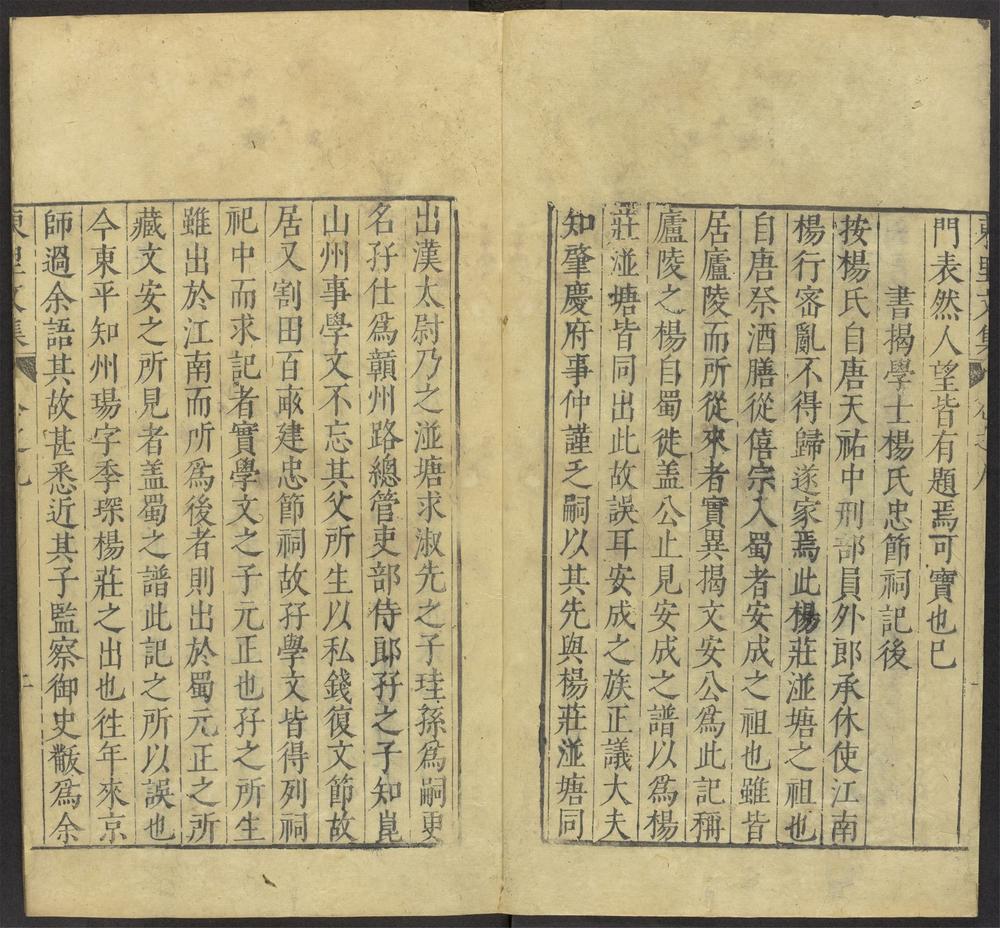 東里文集 卷之九
門表然人望皆有題焉可寶也已
書揭學士楊氏忠節祠記後
按楊氏自唐天祐中刑部員外郎承休使江南
楊行密亂不得歸遂家焉此楊莊湴塘之祖也
自唐祭酒膳從僖宗入蜀者安成之祖也雖皆
居廬陵而所從來者實異揭文安公為此記稱
廬陵之楊自蜀徙盖公止見安成之譜以為楊
莊湴塘皆同出此故誤耳安成之族正議大夫
知肇慶府事仲謹乏嗣以其先與楊莊湴塘同
出漢太尉乃之湴塘求淑先之子珪孫為嗣更
名孖仕為贛州路總管吏部侍郎孖之子知嵬
山州事學文不忘其父所生以私錢復文節故
居又割田百畝建忠節祠故孖學文皆得列祠
祀中而求記者實學文之子元正也孖之所生
雖出於江南而所為後者則出於蜀元正之所
藏文安之所見者盖蜀之譜此記之所以誤也
今東平知州瑒字季琛楊莊之出也徃年來京
師過余語其故甚悉近其子監察御史黻為余
東里文集 卷之九